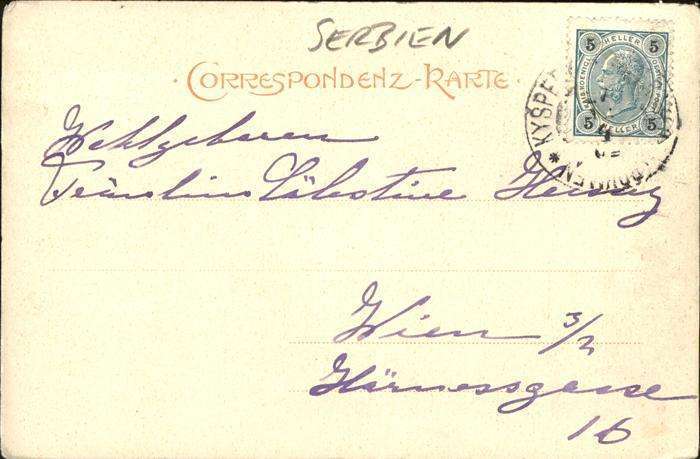 SERBIEN
CORRESPONDENZ-KARTE
5 HELLER 5
5 HELLER 5
KYSPE
Wohlgeboren
Fräulein Cölestine
Wien 3/2
Hörnesgasse
16